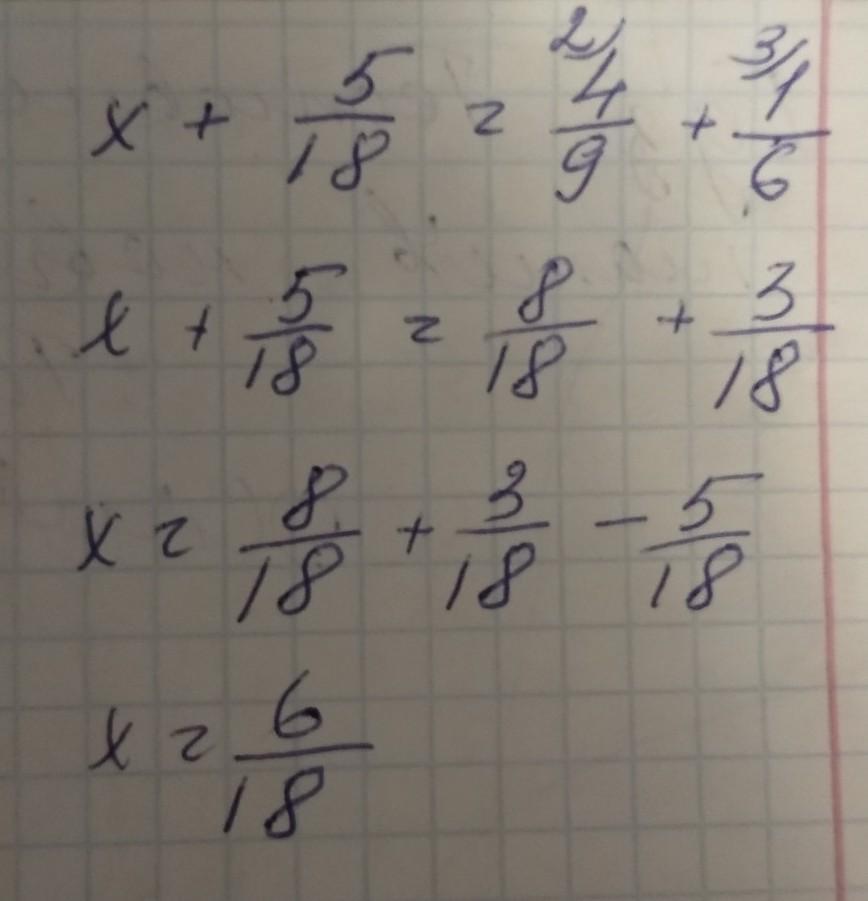 x + 5/18 = 2) 4/9 + 3) 1/6
x + 5/18 = 8/18 + 3/18
x = 8/18 + 3/18 - 5/18
x = 6/18